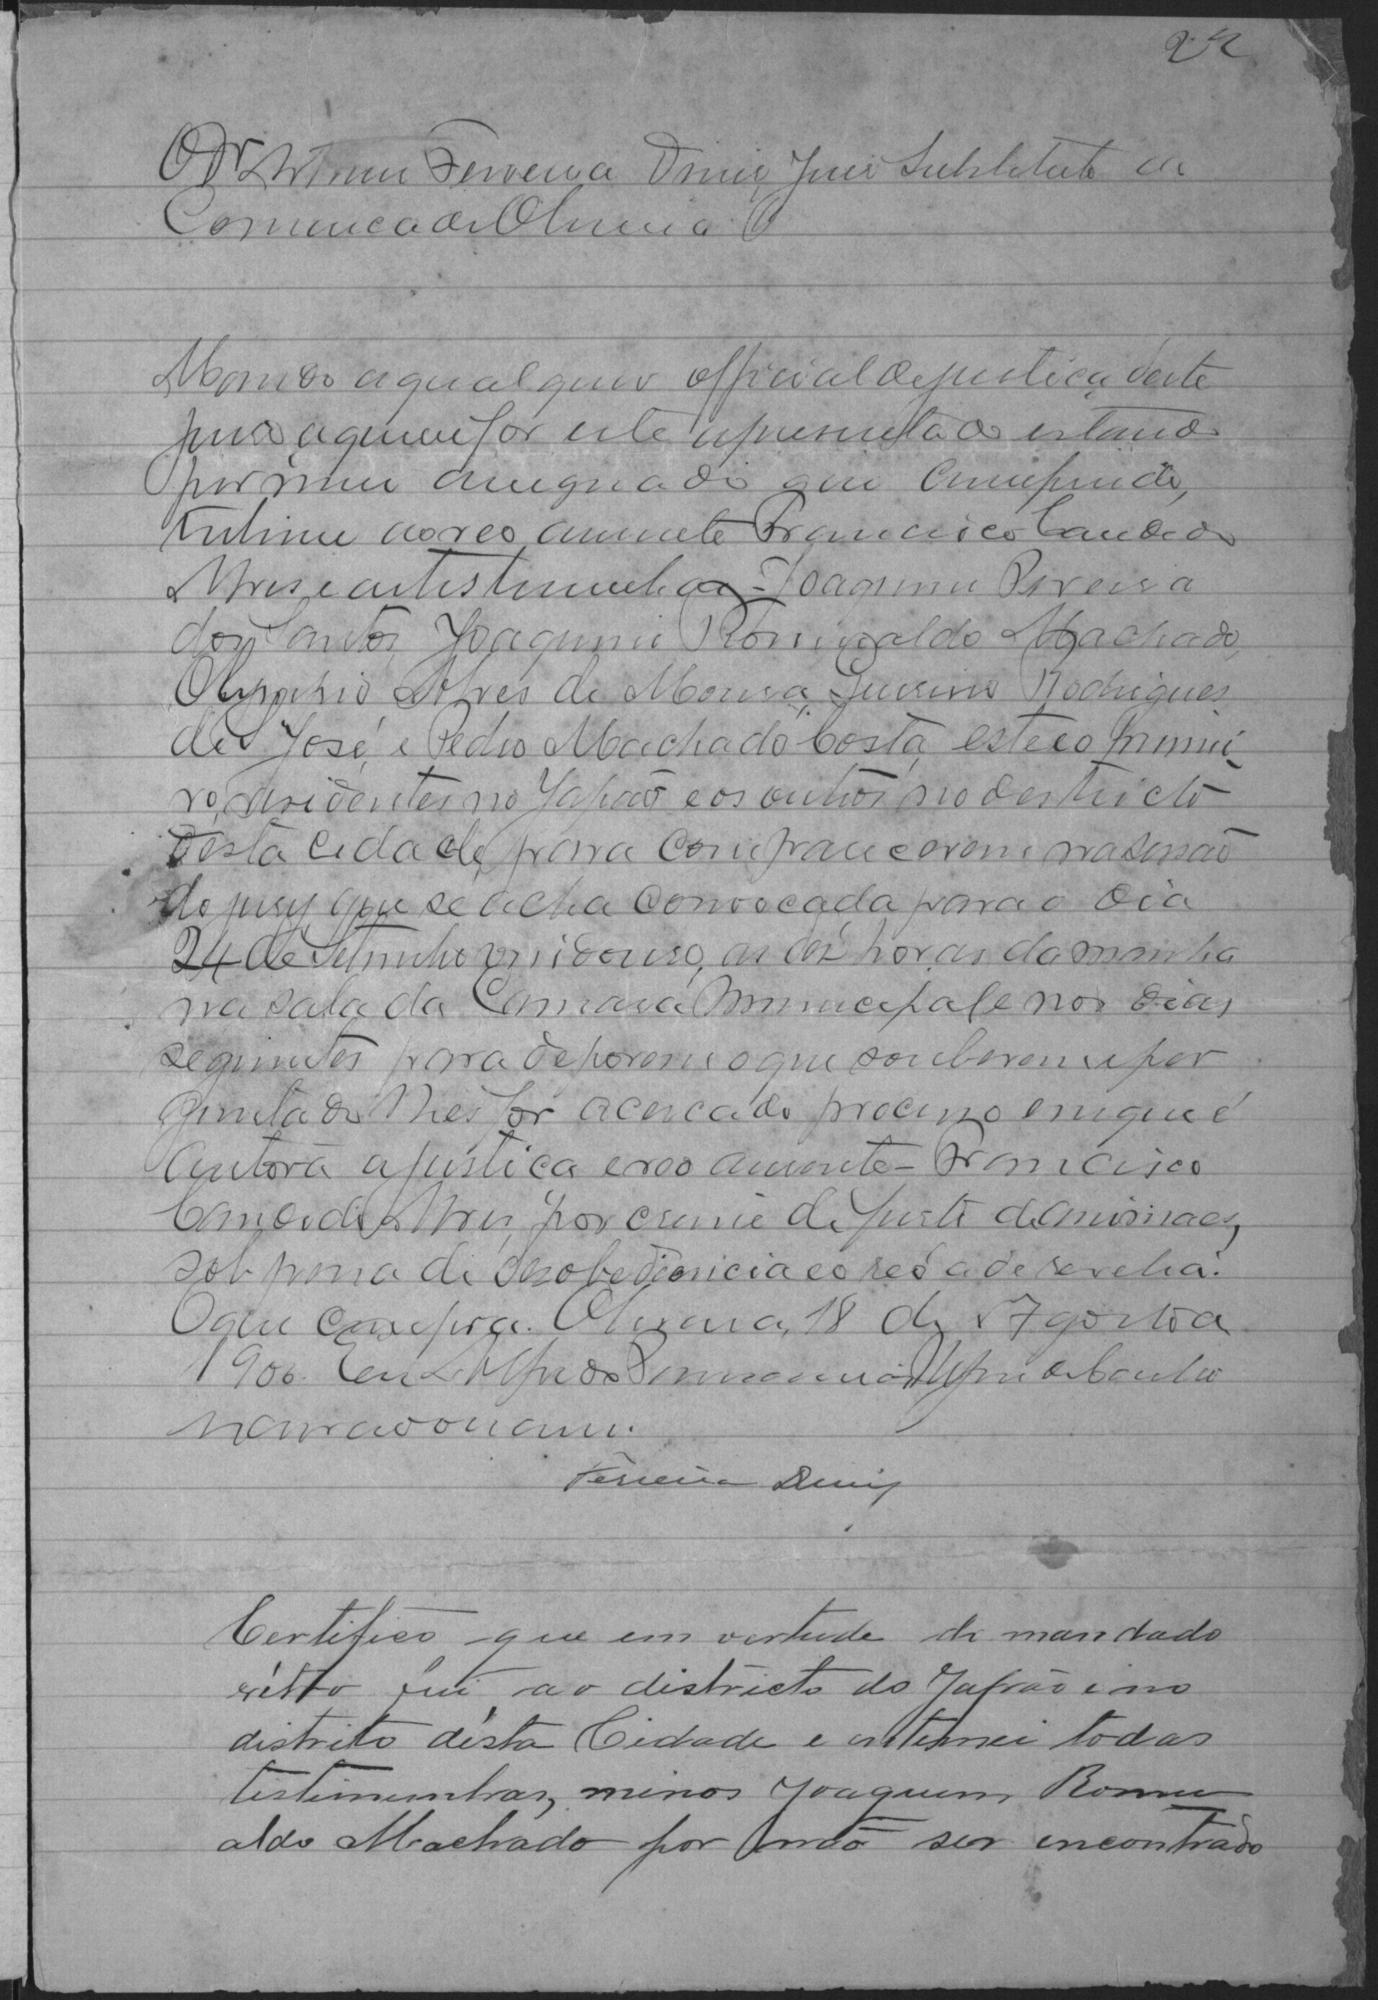 22
O Dr Ferreira Diniz Juiz Substituto da
Comarca de Oliveira
Mando a qualquer official de justiça deste
juizo a quem for este apresentado estando
por mim assignado que em cumprindo,
intime ao reo ausente Francisco Candido
Alves e as testemunhas Joaquim Pereira
dos Santos, Joaquim Romualdo Machado,
Olympio Alves de Moura, Rodrigues
de S José, e Pedro Machado Costa, este e o primei
ro, residentes no Japão e os outros no destricto
desta cidade, para comparecerem na sessão
do jury que se acha convocada para o dia
24 de Setembro vindouro, as dez horas da manha
na sala da Camara Municipal e nos dias
seguintes para deporem o que souberem e per
guntado lhes for acerca do processo em que é
autora a justiça e reo ausente Francisco
Candido Alves, por crime de furto de animaes,
sob pena de desobediencia e o reo a de revelia.
O que cumpra. Oliveira, 18 de Agosto a
1900. Eu Alfredo
escrivão
Ferreira Diniz
Certifico que em vertude do mandado
retro fui ao districto do Japão e no
distrito désta Cidade e intimei todas
testimunhas, minos Joaquim Romu
aldo Machado por não ser encontrado